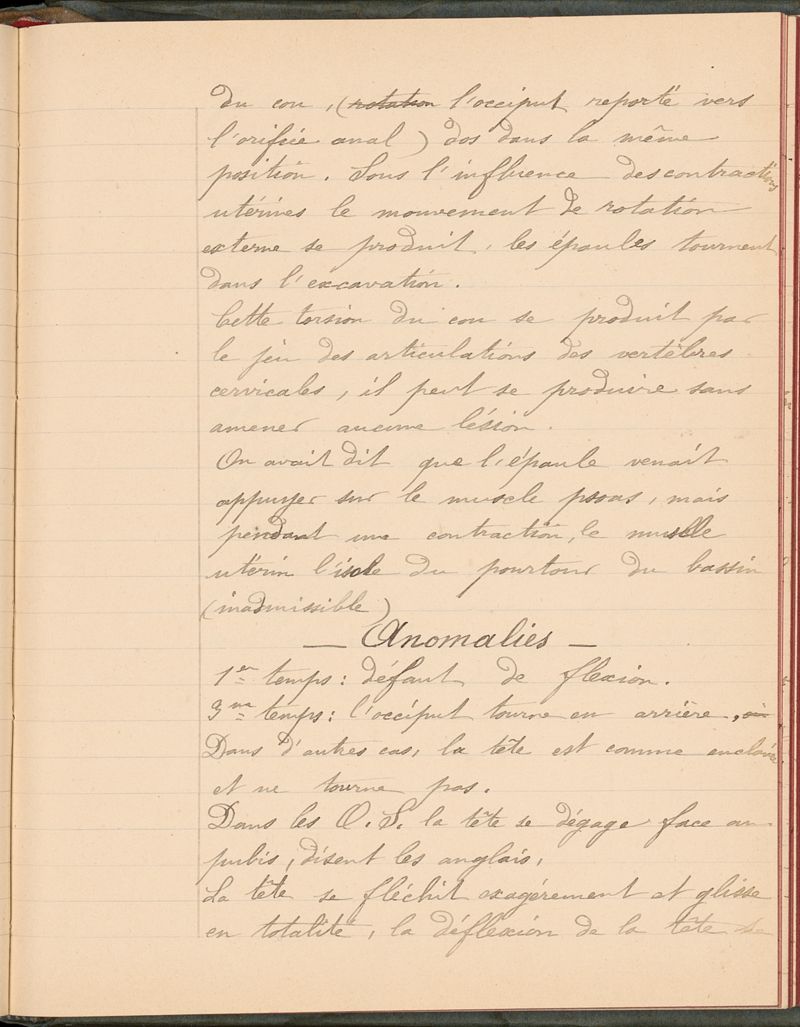 du cou, (rotation l'occiput reporté vers
l'orifice anal) dos dans la même
position. Sous l'influence des contractions
utérines le mouvement de rotation
externe se produit, les épaules tournent
dans l'excavation.
Cette torsion du cou se produit par
le jeu des articulations des vertèbres
cervicales, il peut se produire sans
amener aucune lésion.
On avait dit que l'épaule venait
appuyer sur le muscle psoas, mais
pendant une contraction, le muscle
utérin l'isole du pourtour du bassin
(inadmissible)
— Anomalies —
1er temps: défaut de flexion.
3me temps: l'occiput tourne en arrière,
Dans d'autres cas, la tête est comme enclavée
et ne tourne pas.
Dans les O.S. la tête se dégage face au
pubis, disent les anglais,
La tête se fléchit exagérement et glisse
en totalité, la déflexion de la tête se